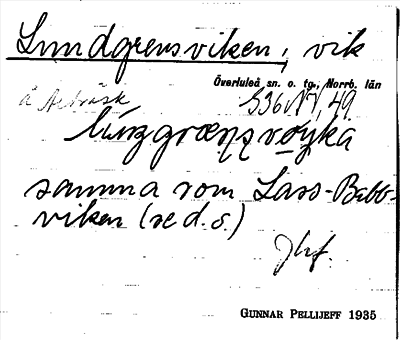 Lundgrensviken, vik
Överluleå sn. o. tg., Norrb. län
å Avträsk 536 NV, 49
samma som Lass-Babb-
viken (se d. o.)
Jhf.
GUNNAR PELLIJEFF 1935